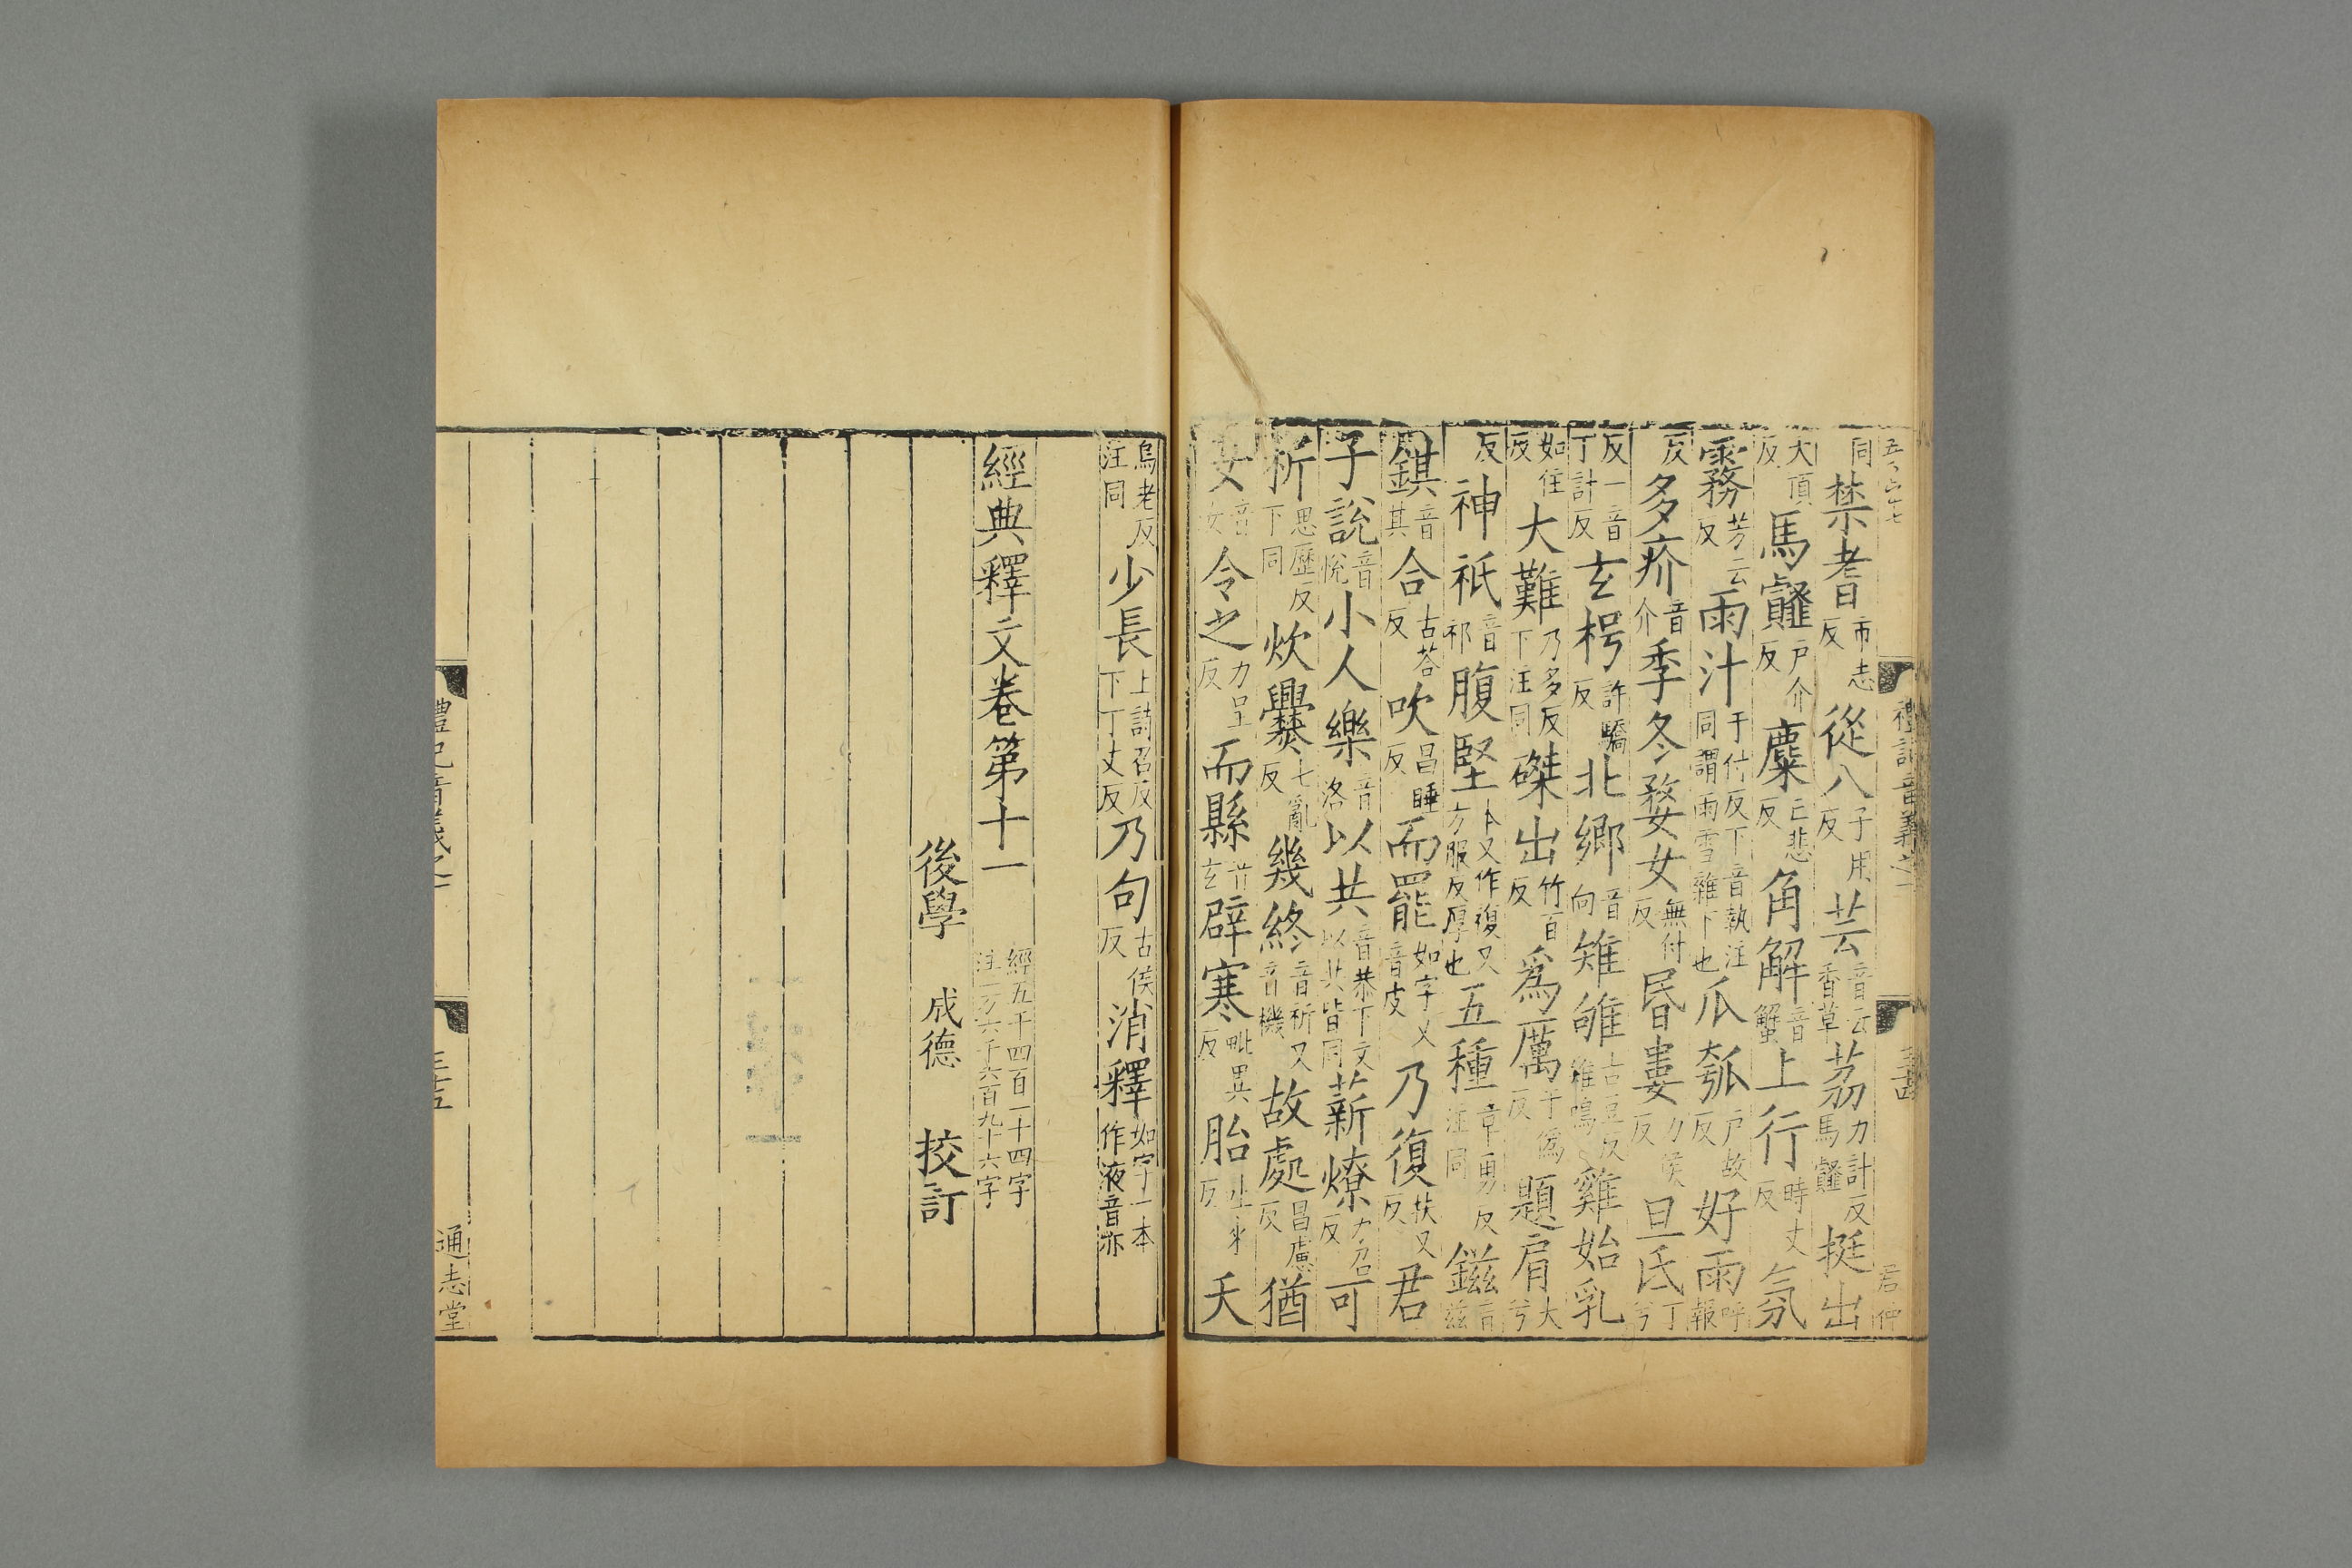 同禁耆市志反從八子用反芸音云香草荔力計反馬䪥挺出
大頂反馬䪥戶介反麋亡悲反角解音蟹上行時丈反氛
霧芳云反雨汁于付反下音執注同謂雨雪雜下也瓜瓠戶故反好雨呼報
反多疥音介季冬婺女無付反昏婁力侯反旦氐丁兮
反一音丁計反玄枵許驕反北鄉音向雉雊古豆反雉鳴雞始乳
如住反大難乃多反下注同磔出竹百反爲厲于僞反題肩大兮
反神祇音祁腹堅本又作復又方服反厚也五種章勇反注同鎡音兹
錤音其合古荅反吹昌睡反而罷如字又音皮乃復扶又反君
子說音悅小人樂音洛以共音恭下文以共皆同薪燎力召反可
析思歷反下同炊爨七亂反幾終音祈又音機故處昌慮反猶
女音汝令之力呈反而縣音玄辟寒毗異反胎土來反夭
烏老反注同少長上詩召反下丁丈反乃句古侯反消釋如字一本作液音亦
經典釋文卷第十一 經五千四百一十四字注一万六千六百九十六字
後學 成德 挍訂
禮記音義之一
通志堂